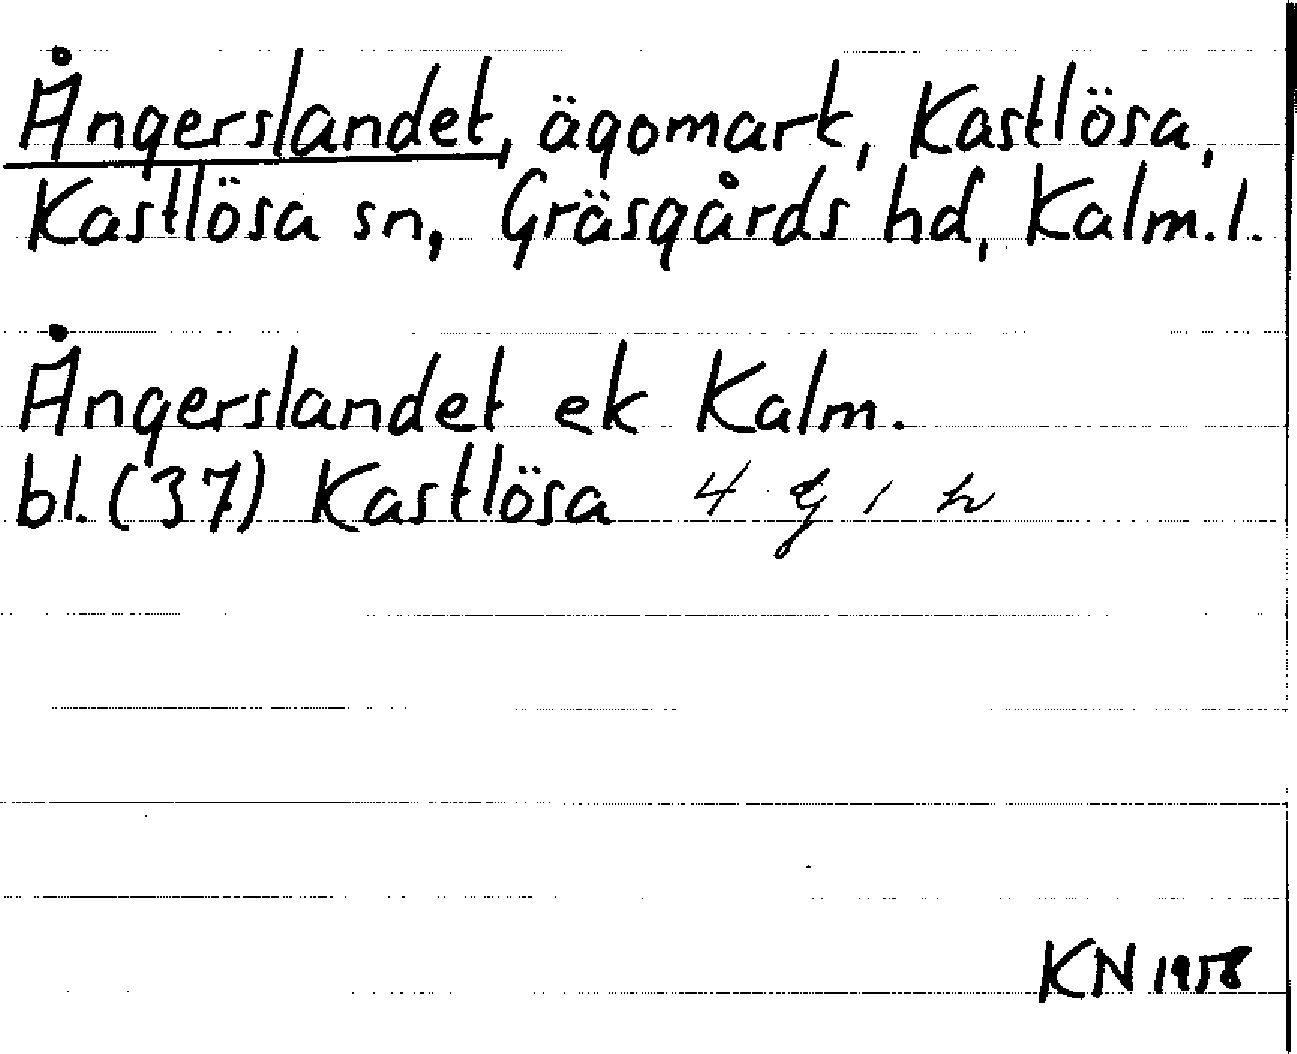 Ångerslandet, ägomark, Kastlösa,
Kastlösa sn, Gräsgårds hd, Kalm. l.
Ångerslandet ek Kalm.
bl. (37) Kastlösa 4 g 1 h
KN 1958